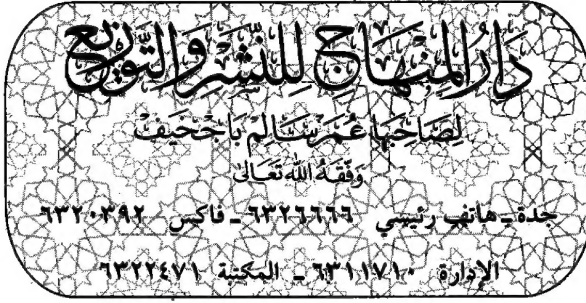 دَارُ المِنْهَاجِ لِلنَّشْرِ وَالتَّوْزِيعِ
لِصَاحِبِهَا عُمَر سَالِم بَاجخَيف
وَفَّقَهُ اللهُ تَعَالىٰ
جدة ـ هاتف رئيسي ٦٣٢٦٦٦٦ ـ فاكس ٦٣٢٠٣٩٢
الإدارة ٦٣١١٧١٠ ـ المكتبة ٦٣٢٢٤٧١